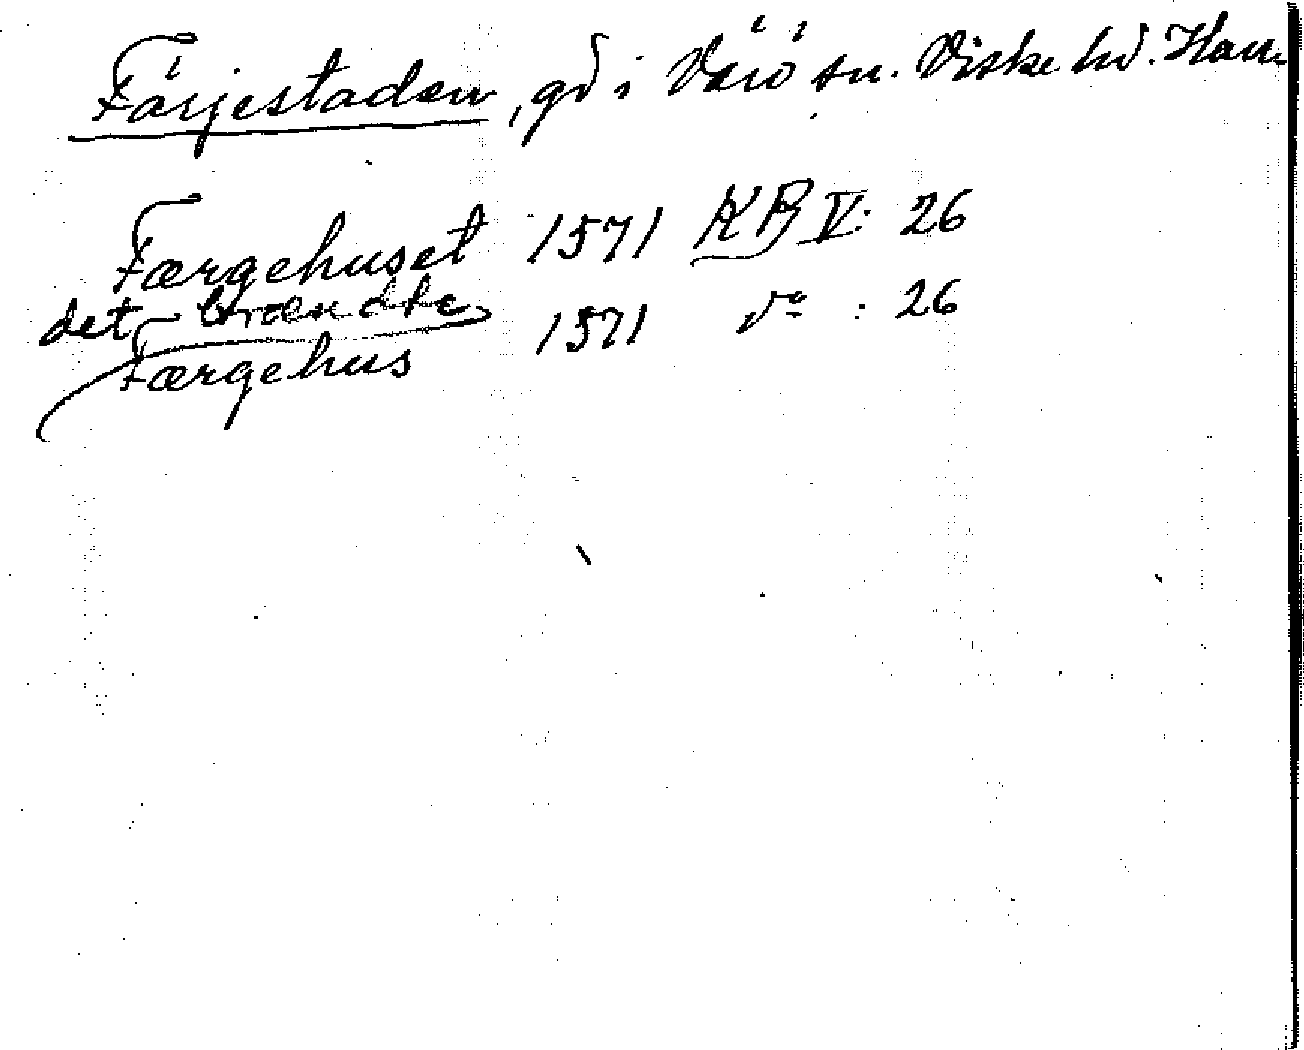 Färjestaden, gd i Värö sn. Viske hd. Hall.
Færgehuset 1571 KB V: 26
det brændte
Færgehus 1571 do : 26